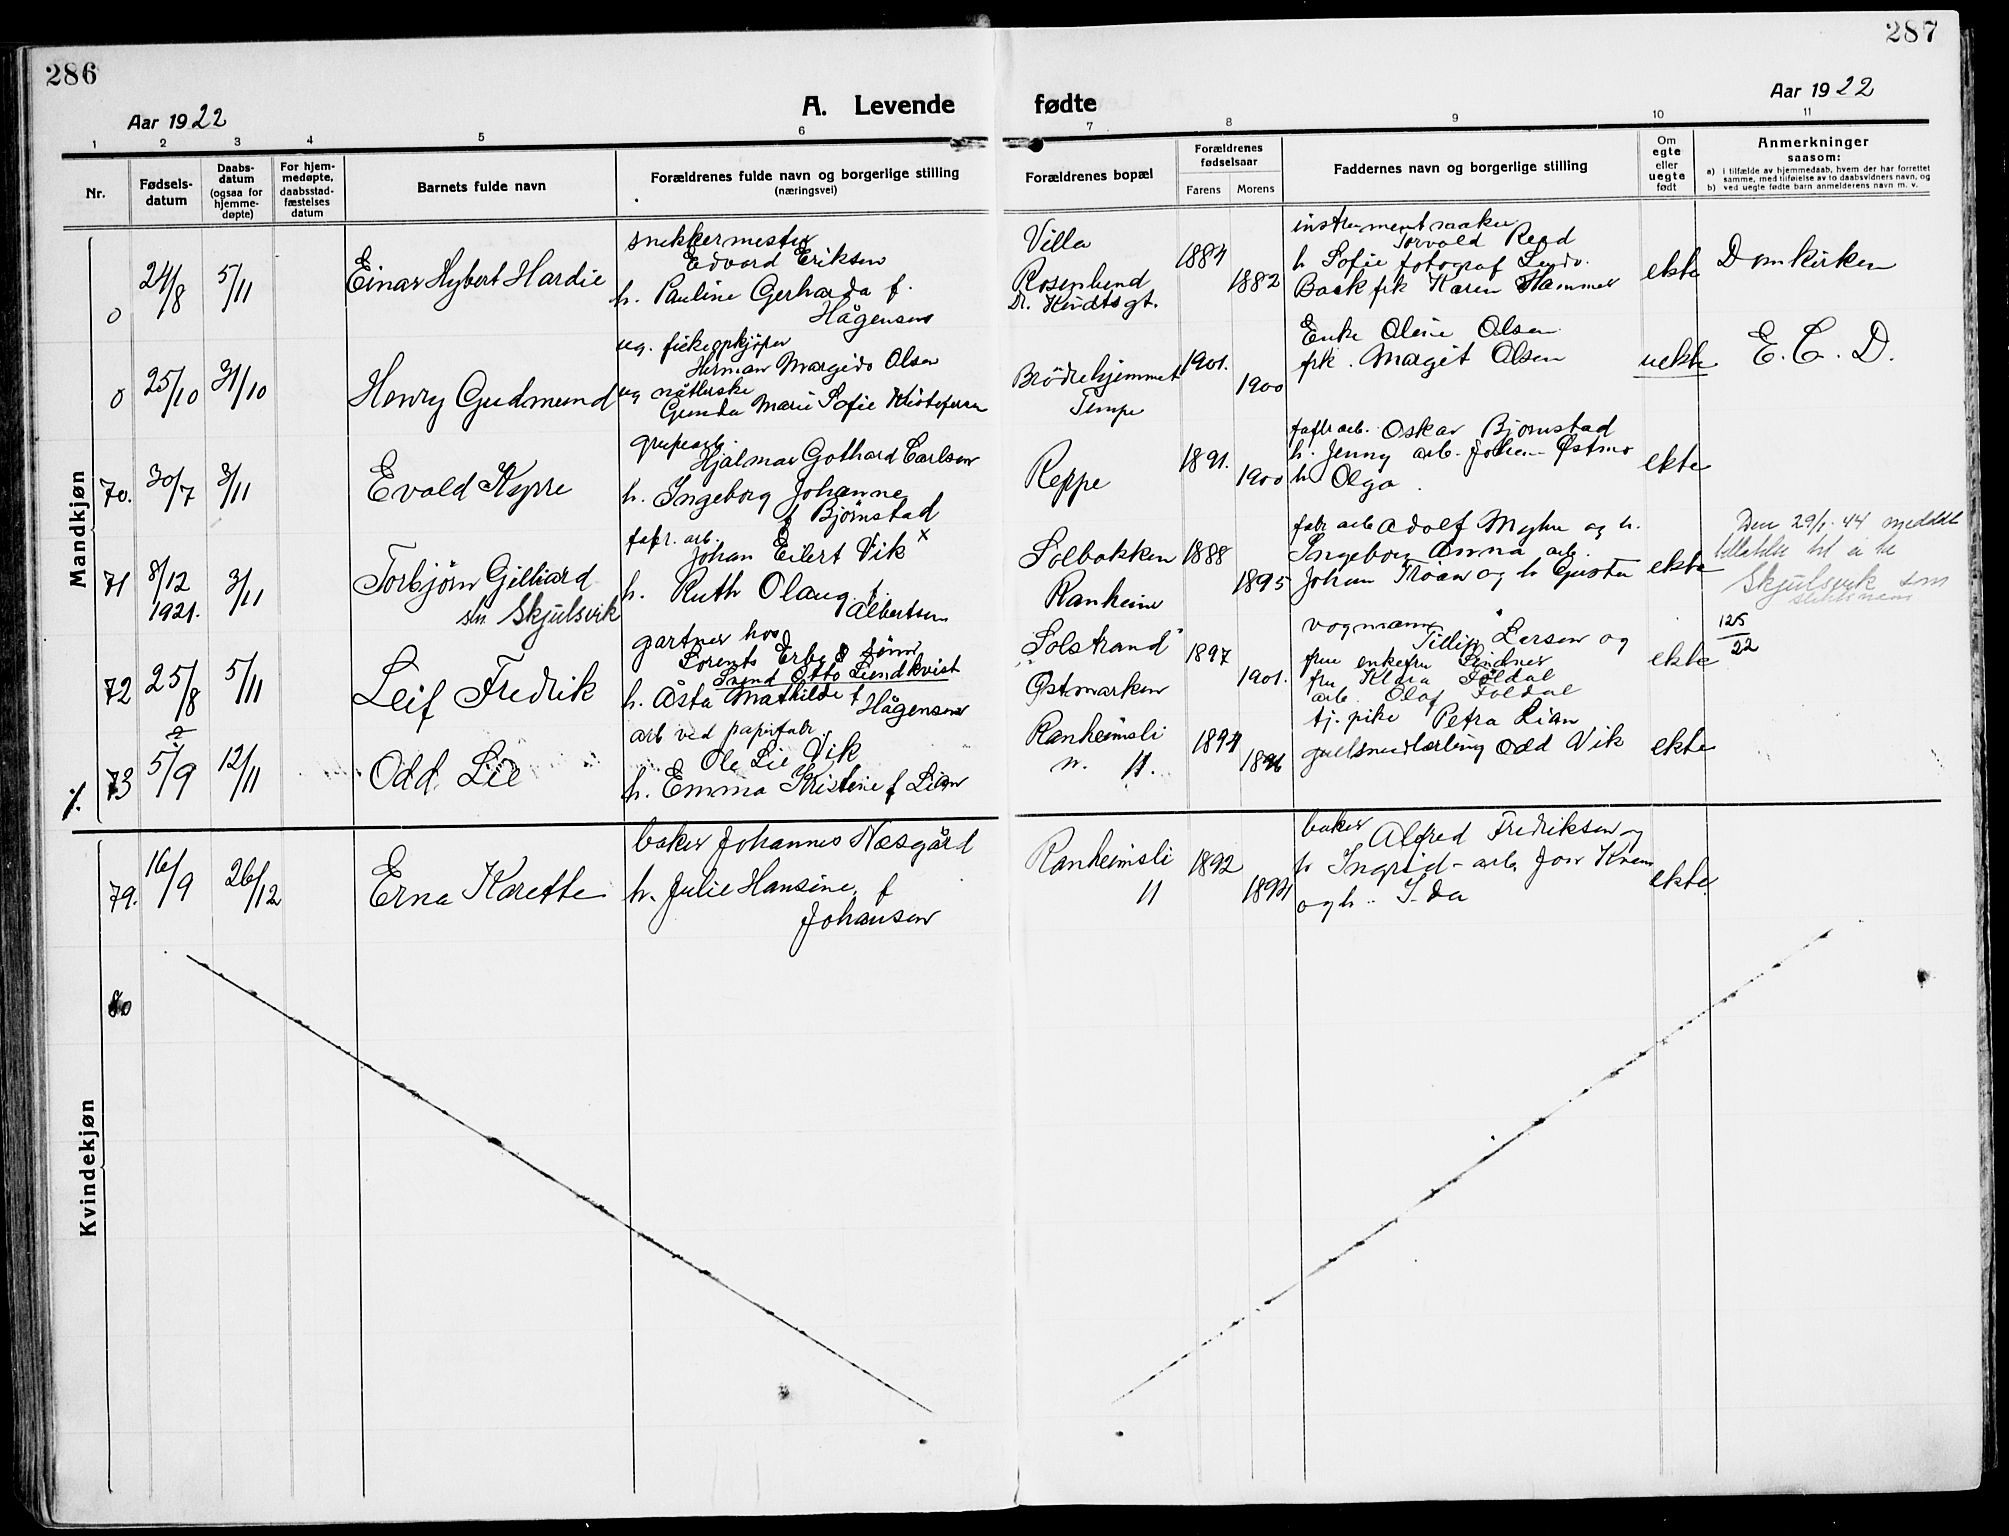 286
287
Aar 1922
A. Levende fødte
Aar 1922
1 2 3 4 5 6 7 8 9 10 11
Nr.
Fødsels-
datum
Daabs-
datum
(ogsaa for
hjemme-
døpte)
For hjem-
medøpte,
daabsstad-
fæstelses
datum
Barnets fulde navn
Forældrenes fulde navn og borgerlige stilling
(næringsvei)
Forældrenes bopæl
Forældrenes
fødselsaar
Farens Morens
Faddernes navn og borgerlige stilling
Om
egte
eller
uegte
født
Anmerkninger
saasom:
a) i tilfælde av hjemmedaab, hvem der har forrettet
samme, med tilføielse av to daabsvidners navn, og
b) ved uegte fødte barn anmelderens navn m. v.
Mandkjøn
0 24/8 5/11 Einar Hybert Hardie
snekkermester
Edvard Eriksen
h. Pauline Gerharda f.
Hågensen
Villa
Rosenlund
Dr. Kindtsgt.
1884 1882
instrumentmaker
Torvald Reod
h Sofie fotograf
Baak frk Karen Hammer
ekte
Domkirken
0 25/10 31/10 Henry Gudmund
ug. fiskeopkjøper
Herman Margido Olsen
ug
Gunda Marie Sofie
Brødrehjemmet
Tempe
1901. 1900
Enke Oline Olsen
frk. Margit Olsen
uekte
E. C. D.
70. 30/7 3/11 Evald
Hjalmar Gothard Carlsen
h. Ingeborg Johanne
f Bjørnstad
Reppe
1891. 1900
fabr arb. Oskar Bjørnstad
h. Jenny arb. Johan Østmo
h Olga.
ekte
71 8/12 1921. 3/11 Torbjørn Gilliard
sln Skjulsvik
fabr. arb.
Johan Eilert Vik x
h. Ruth Olaug f.
Albertsen
Solbakken
Ranheim
1888 1895
fabr arb Adolf Myhr og h.
Ingeborg Anna arb.
Johan Trøan og h Gusta
ekte
Den 29/1-44 meddelt
tillatelse til å ta
Skjulsvik som
slektsnavn
72 25/8 5/11 Leif Fredrik
gartner hos
Lorents Erbe & Sønn
Svend Otto Lindkvist
h. Åsta Mathilde f
Hågensen
"Solstrand"
Østmarken
1897 1901.
vogmann
Tillip Larsen og
frue enkefru Lindner
fru Klara Foldal
arb. Olaf Foldal
ekte
125
22
73 5/9 12/11 Odd Lie
arb ved papirfabr.
Ole Lie Vik
h. Emma Kristine f Lian
Ranheimsli
n. 11.
1894 1896
tj. pike Petra Lian
gulsmedlærling Odd Vik
ekte
Kvindekjøn
79. 16/9 26/12 Erna Karette
baker Johannes Næsgård
h. Julie Hansine, f
Johansen
Ranheimsli
11
1892 1894
baker Alfred Fredriksen og
h Ingrid - arb. Joar
og h.. Ida
ekte.
80